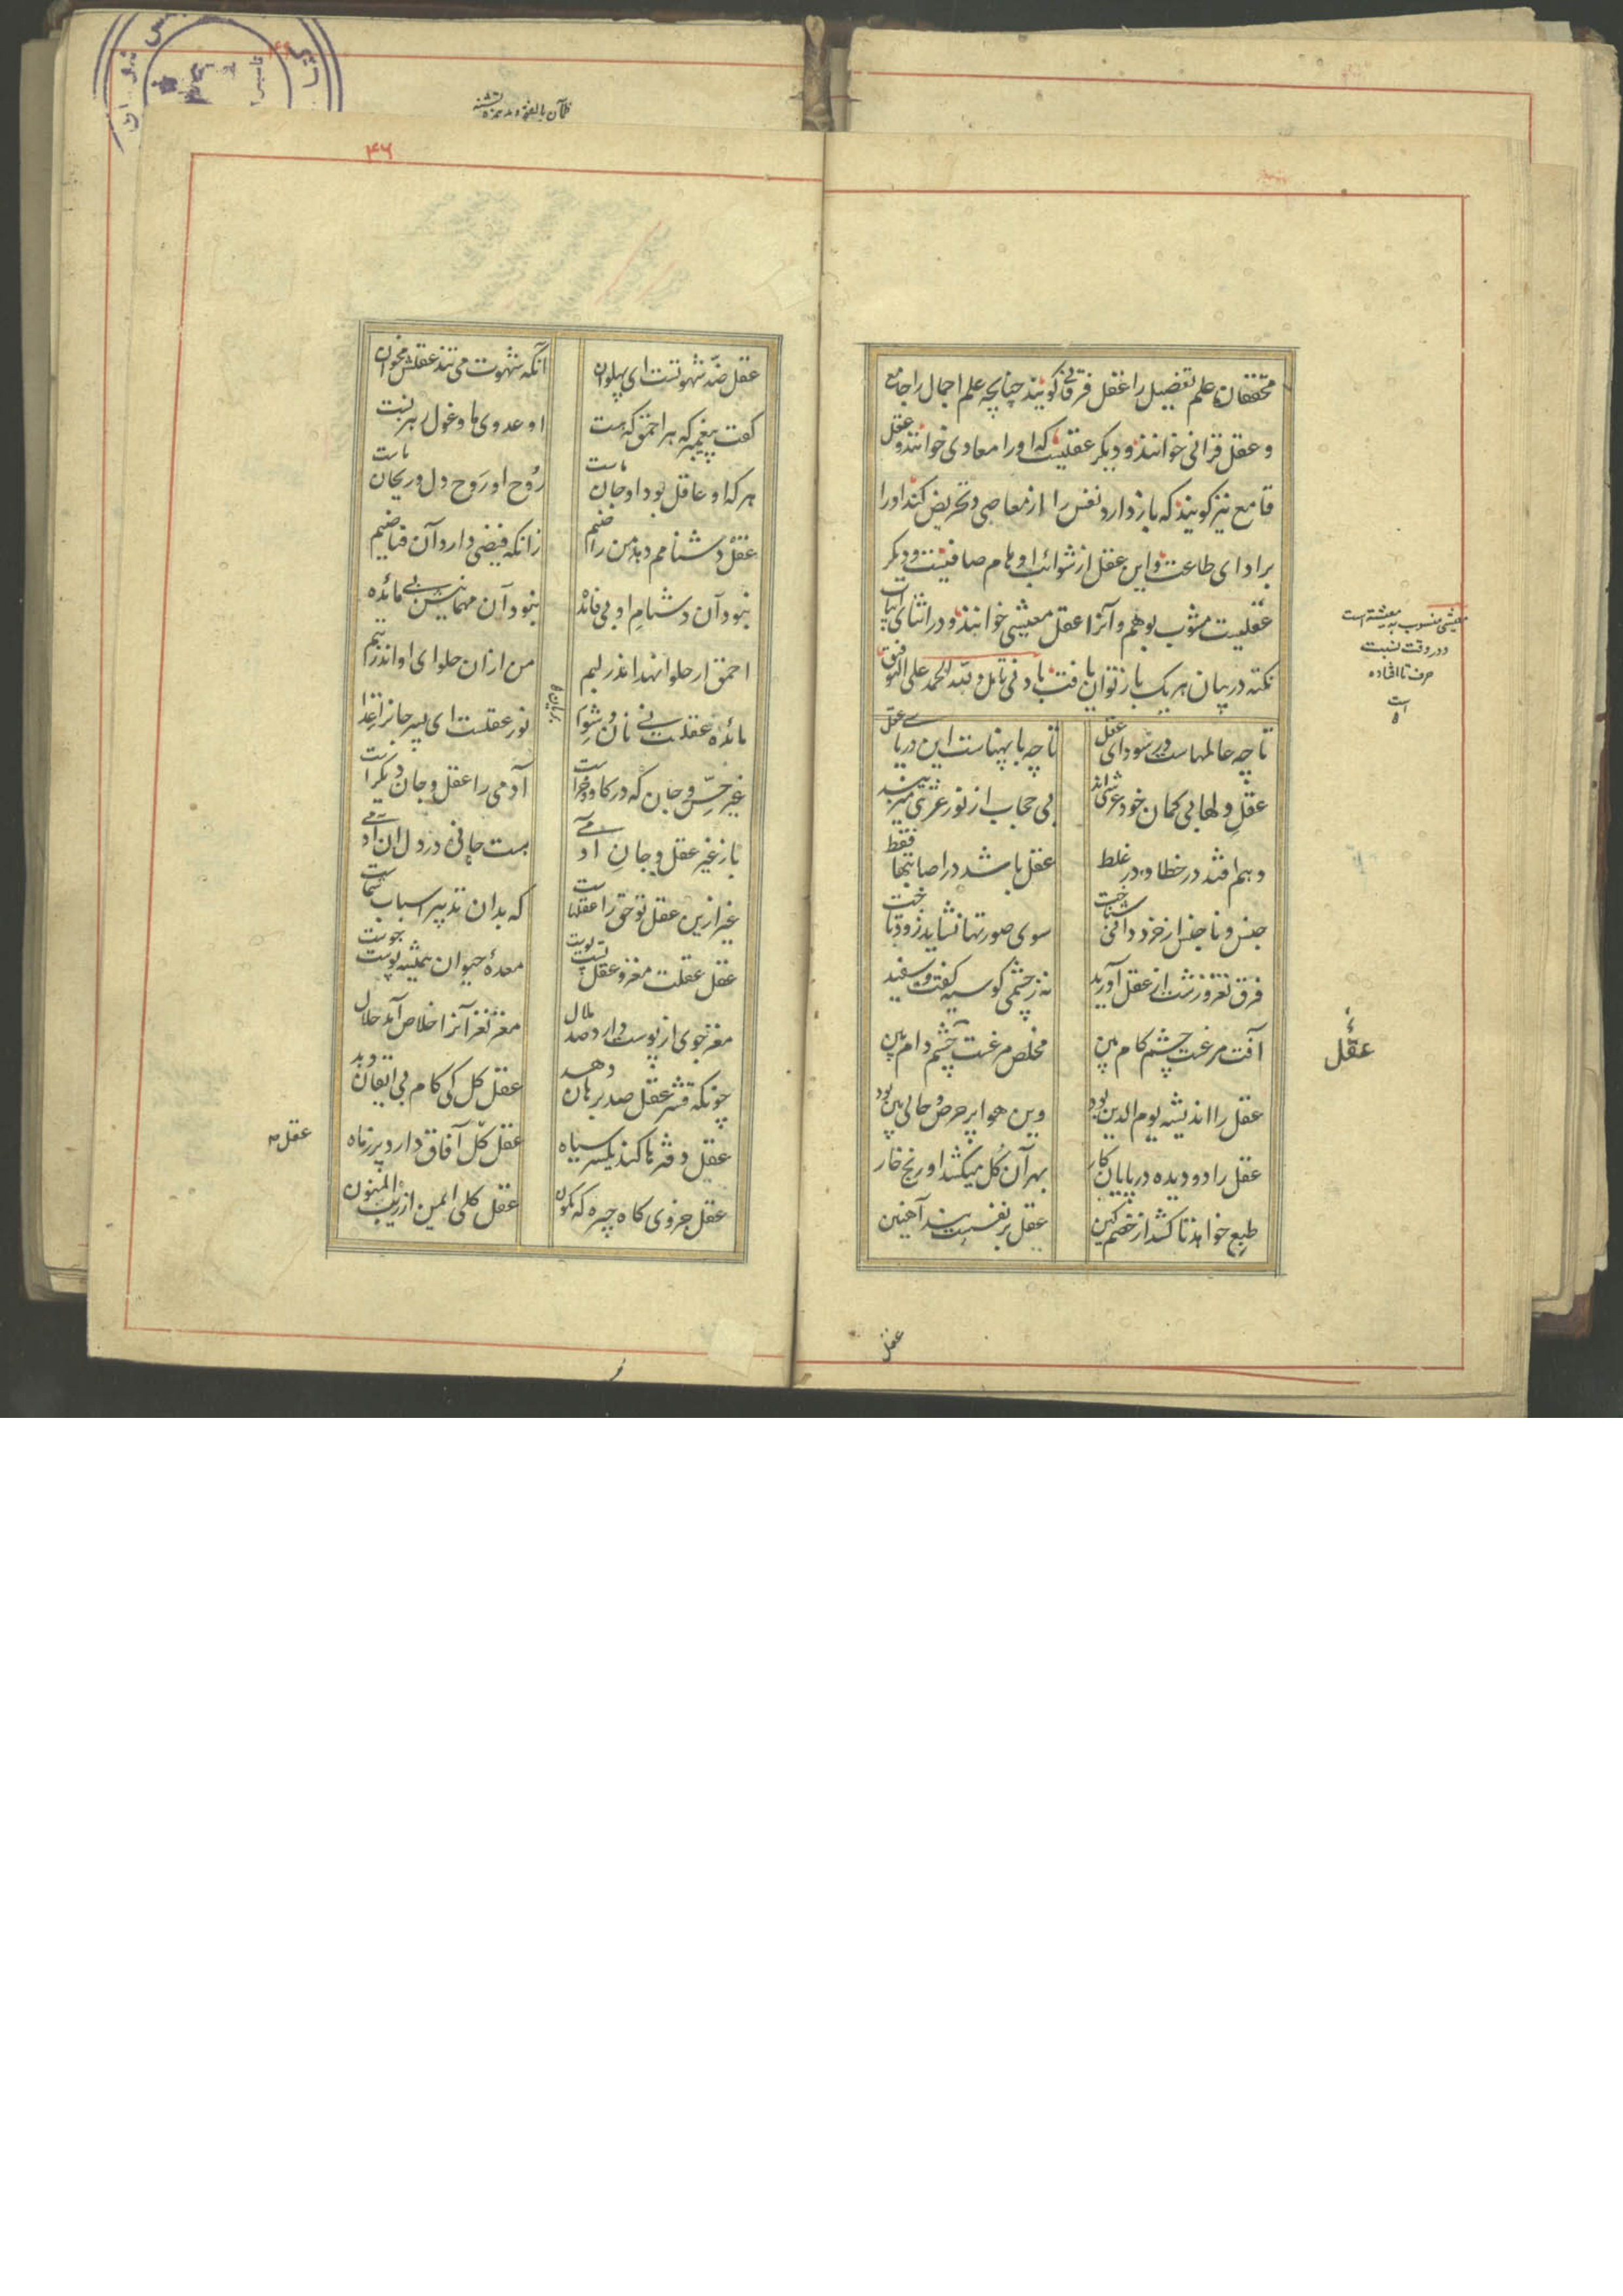 محققان علم تفصیل را عقل فرقانی کویند چنانچه علم اجمال را جامع
و عقل قرآنی خوانند و دیکر عقلیست که او را معادی خوانند و عقل
قامع نیز کویند که باز دارد نفس را از معاصی و تحریض کند او را
بر ادای طاعت و این عقل از شوائب اوهام صافیست و دیکر
عقلیست مشوب بوهم و آنرا عقل معیشی خوانند و در اثنای ابیات
نکته در بیان هر یک باز توان یافت بادنی تامل و لله الحمد علی التوفیق
تا چه عالمهاست در سودای عقل
تا چه با پهناست این دریای عقل
عقل و دلها بی کمان خود عرشی اند
بی حجاب از نور عرشی میزیند
وهم افتد در خطا و در غلط
عقل باشد در اصابتها فقط
جنس و ناجنس از خرد دانی شناخت
سوی صورتها نشاید زود تاخت
فرق نغز و زشت از عقل آورید
نه ز چشمی کو سیه کفت و سفید
آفت مرغست چشم کام بین
مخلص مرغست چشم دام بین
عقل را اندیشه یوم الدین بود
وین هوا پر حرص و حالی بین بود
عقل را دو دیده در پایان کار
بهر آن کل میکشد او رنج خار
طبع خواهد تا کشد از خصم کین
عقل بر نفسست بند آهنین
معیشی منسوب به معیشة است
و در وقت نسبت
حرف تا افتاده
است
عقل
عقل
۴۶
عقل ضد شهوتست ای پهلوان
آنکه شهوت می تند عقلش مخوان
کفت پیغمبر که هر احمق که هست
او عدوی ما و غول رهزنست
هر که او عاقل بود او جان ماست
روح او روح دل و ریحان ماست
عقل دشنامم دهد من راضیم
زانکه فیضی دارد آن فیاضیم
نبود آن دشنام او بی فائده
نبود آن مهمانیش بی مائده
احمق ار حلوا نهد اندر لبم
من از آن حلوای او اندر تبم
مائده عقلست نی نان و شوا
نور عقلست ای پسر جانرا غذا
غیر حس و جان که در کاو و خراست
آدمی را عقل و جان دیکراست
باز غیر عقل و جان آدمی
هست جانی در ولی آن دمی
غیر ازین عقل تو حق را عقلهاست
که بدان تدبیر اسباب شماست
عقل عقلت مغز و عقل تست پوست
معدهٔ حیوان همیشه پوست جوست
مغز جوی از پوست دارد صد ملال
مغز نغز آنرا حلال آمد حلال
چونکه قشر عقل صد برهان دهد
عقل کل کی کام بی ایقان دهد
عقل دفترها کند یکسر سیاه
عقل کل آفاق دارد پر ز ماه
عقل جزوی کاه چیره که نکون
عقل کلی ایمن از ریب المنون
عقل